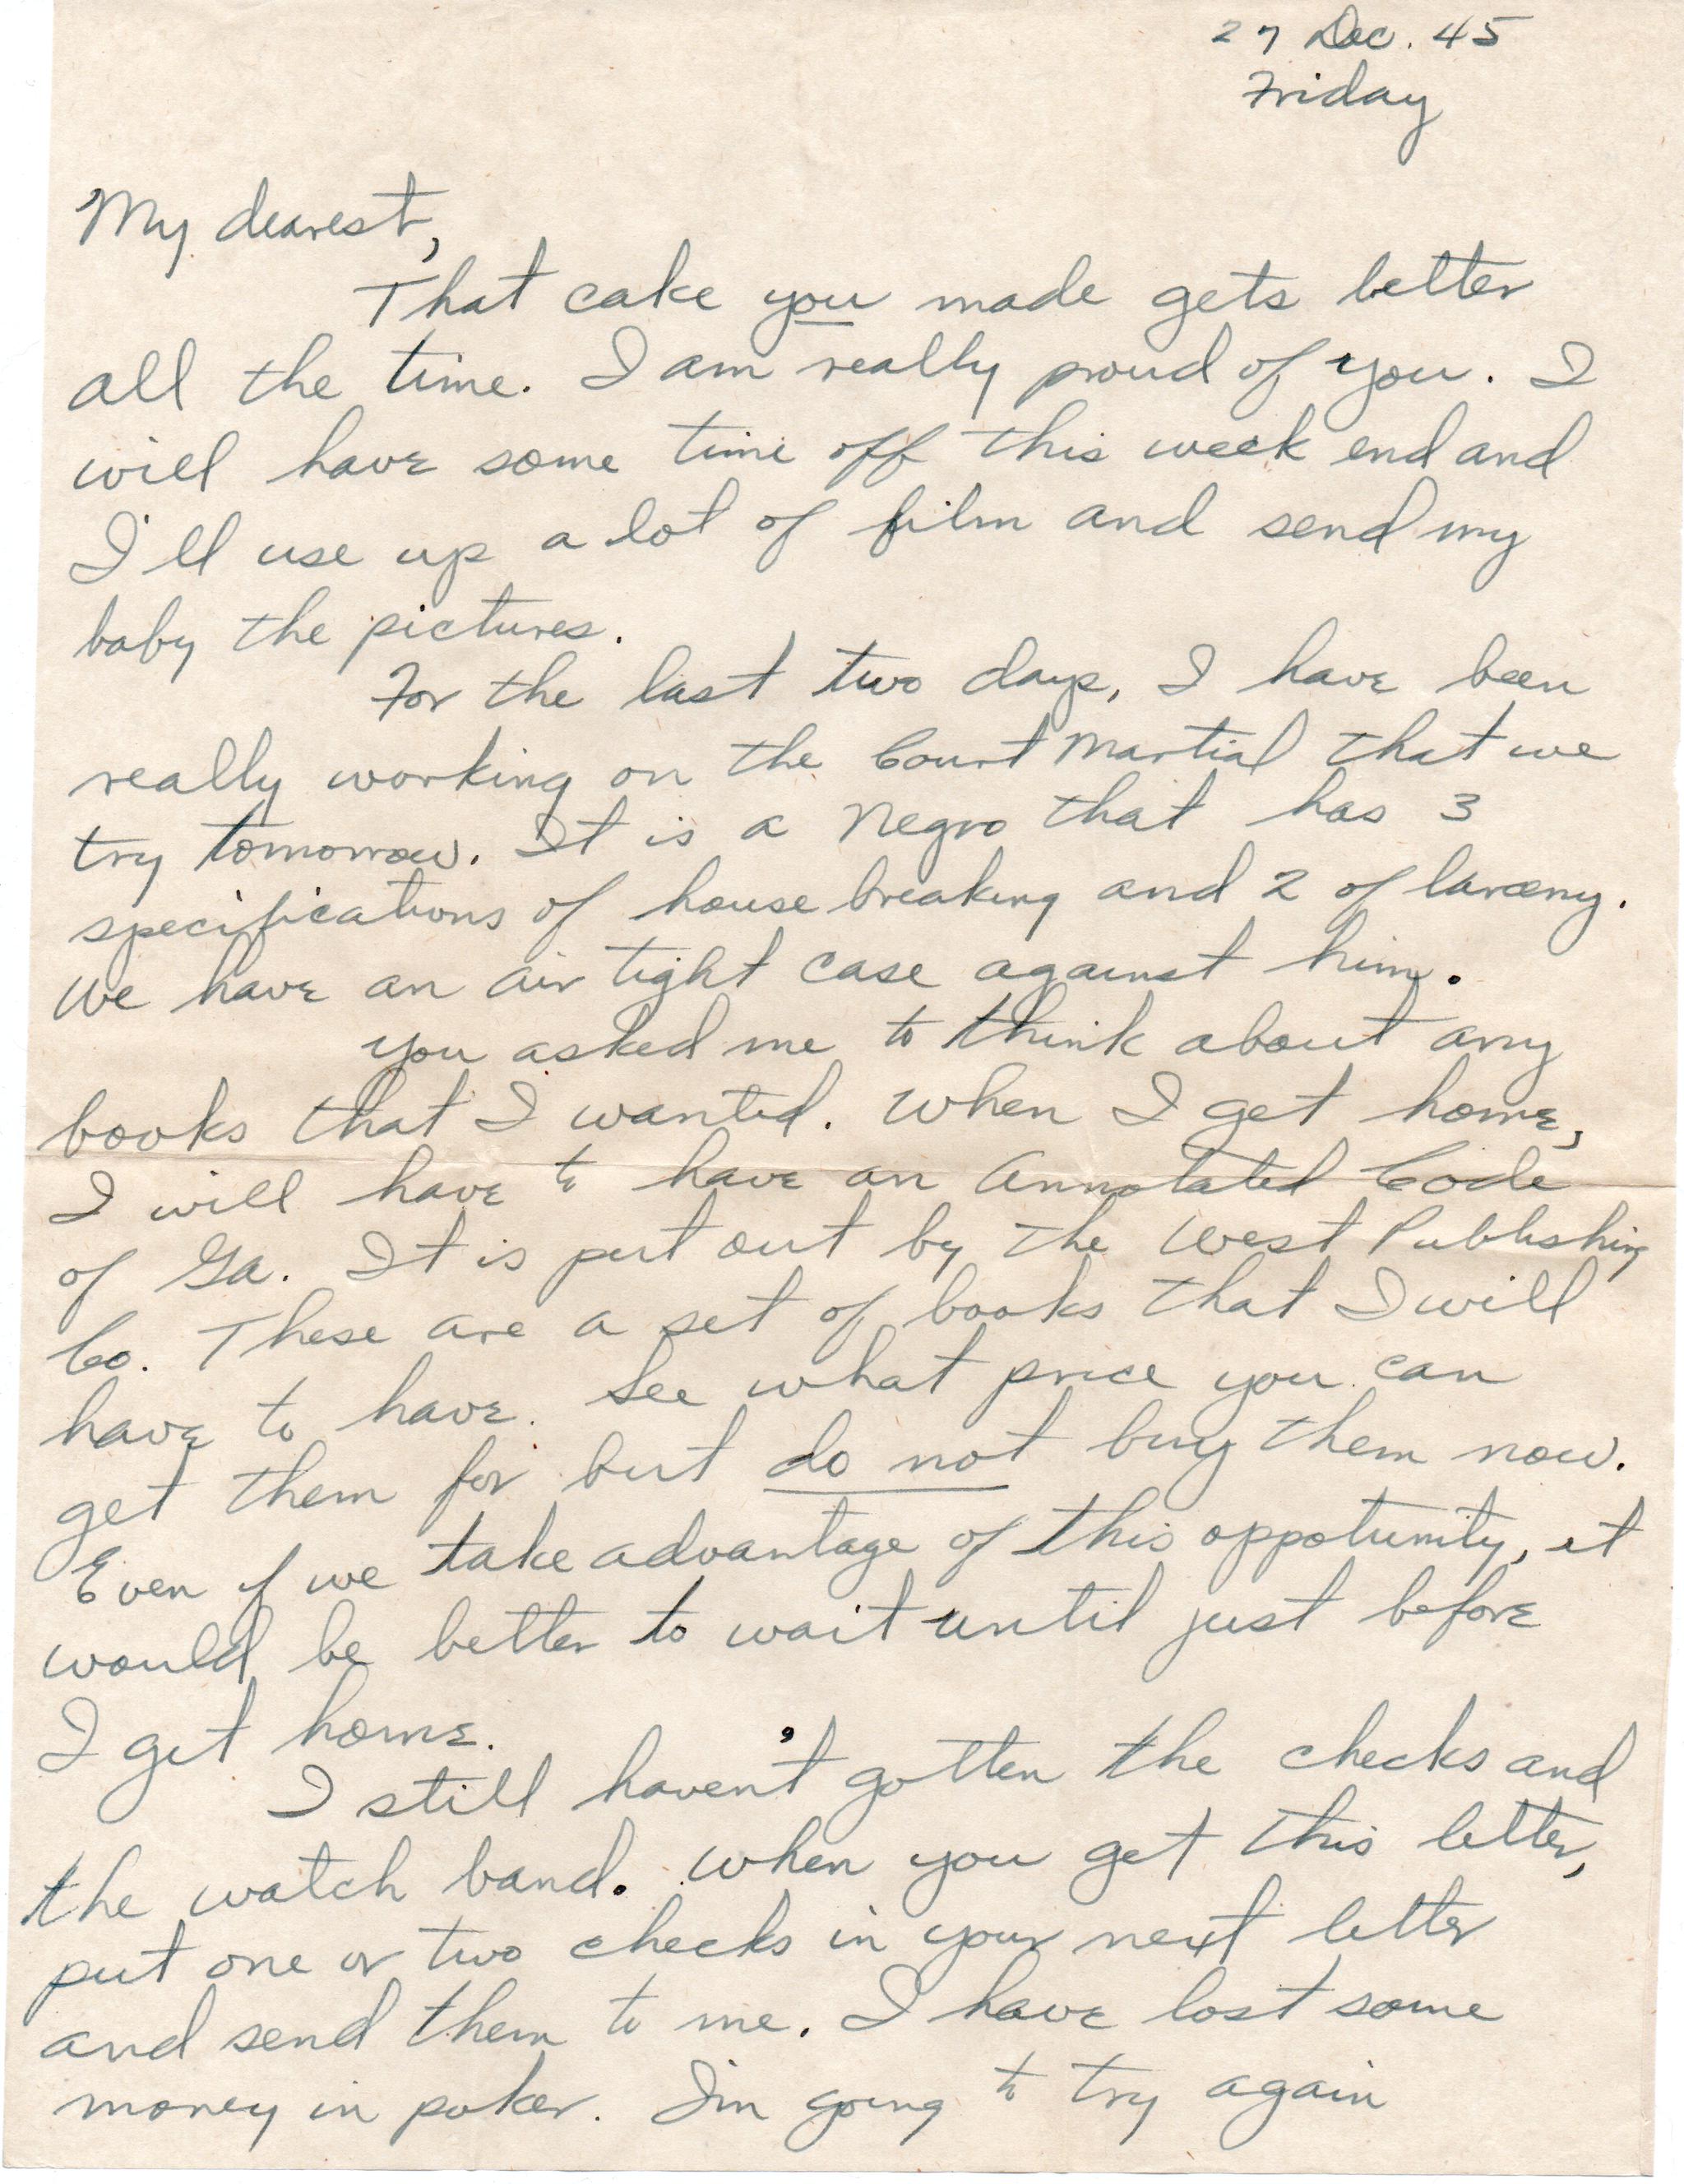 27 Dec. 45
Friday
My dearest,
That cake you made gets better
all the time. I am really proud of you. I
will have some time off this week end and
I'll use up a lot of film and send my
baby the pictures.
For the last two days, I have been
really working on the Court Martial that we
try tomorrow. It is a Negro that has 3
specifications of house breaking and 2 of larceny.
We have an air tight case against him.
You asked me to think about any
books that I wanted. When I get home,
I will have to have an Annotated Code
of Ga. It is put out by the West Publishing
Co. These are a set of books that I will
have to have. See what price you can
get them for but do not buy them now.
Even if we take advantage of this oppotunity, it
would be better to wait until just before
I get home.
I still haven't gotten the checks and
the watch band. When you get this letter,
put one or two checks in your next letter
and send them to me. I have lost some
money in poker. I'm going to try again